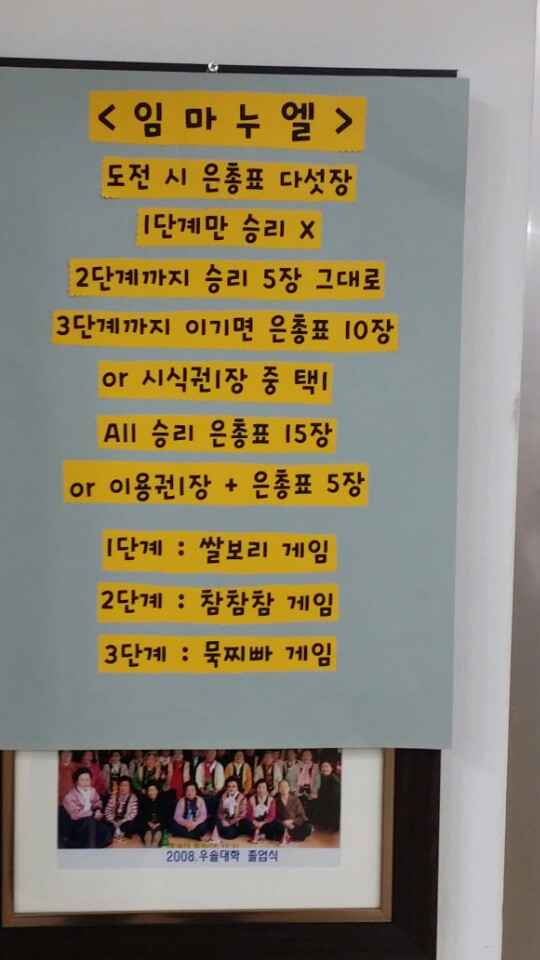 < 임마누엘 >
도전 시 은총표 다섯장
1단계만 승리 X
2단계까지 승리 5장 그대로
3단계까지 이기면 은총표 10장
or 시식권1장 중 택1
All 승리 은총표 15장
or 이용권1장 + 은총표 5장
1단계 : 쌀보리 게임
2단계 : 참참참 게임
3단계 : 묵찌빠 게임
2008.우솔대학 졸업식